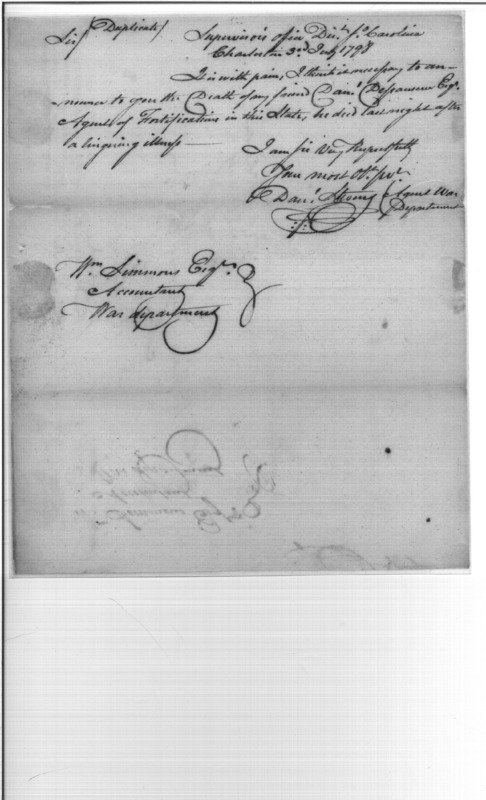 (Duplicate) Supervisor's office Dist. So. Carolina
Sir Charleston 3rd July 1798
It is with pain, I think it necessary to an-
nounce to you the Death of my friend Danl. Dessaussure Esqr.
Agent of Fortifications in this State, he died last night after
a lingering illness —
I am Sir Very Respectfully
Your most Ob. Svt
Danl. Stevens Agent War
Department
Wm. Simmons Esqr.
Accountant
War department